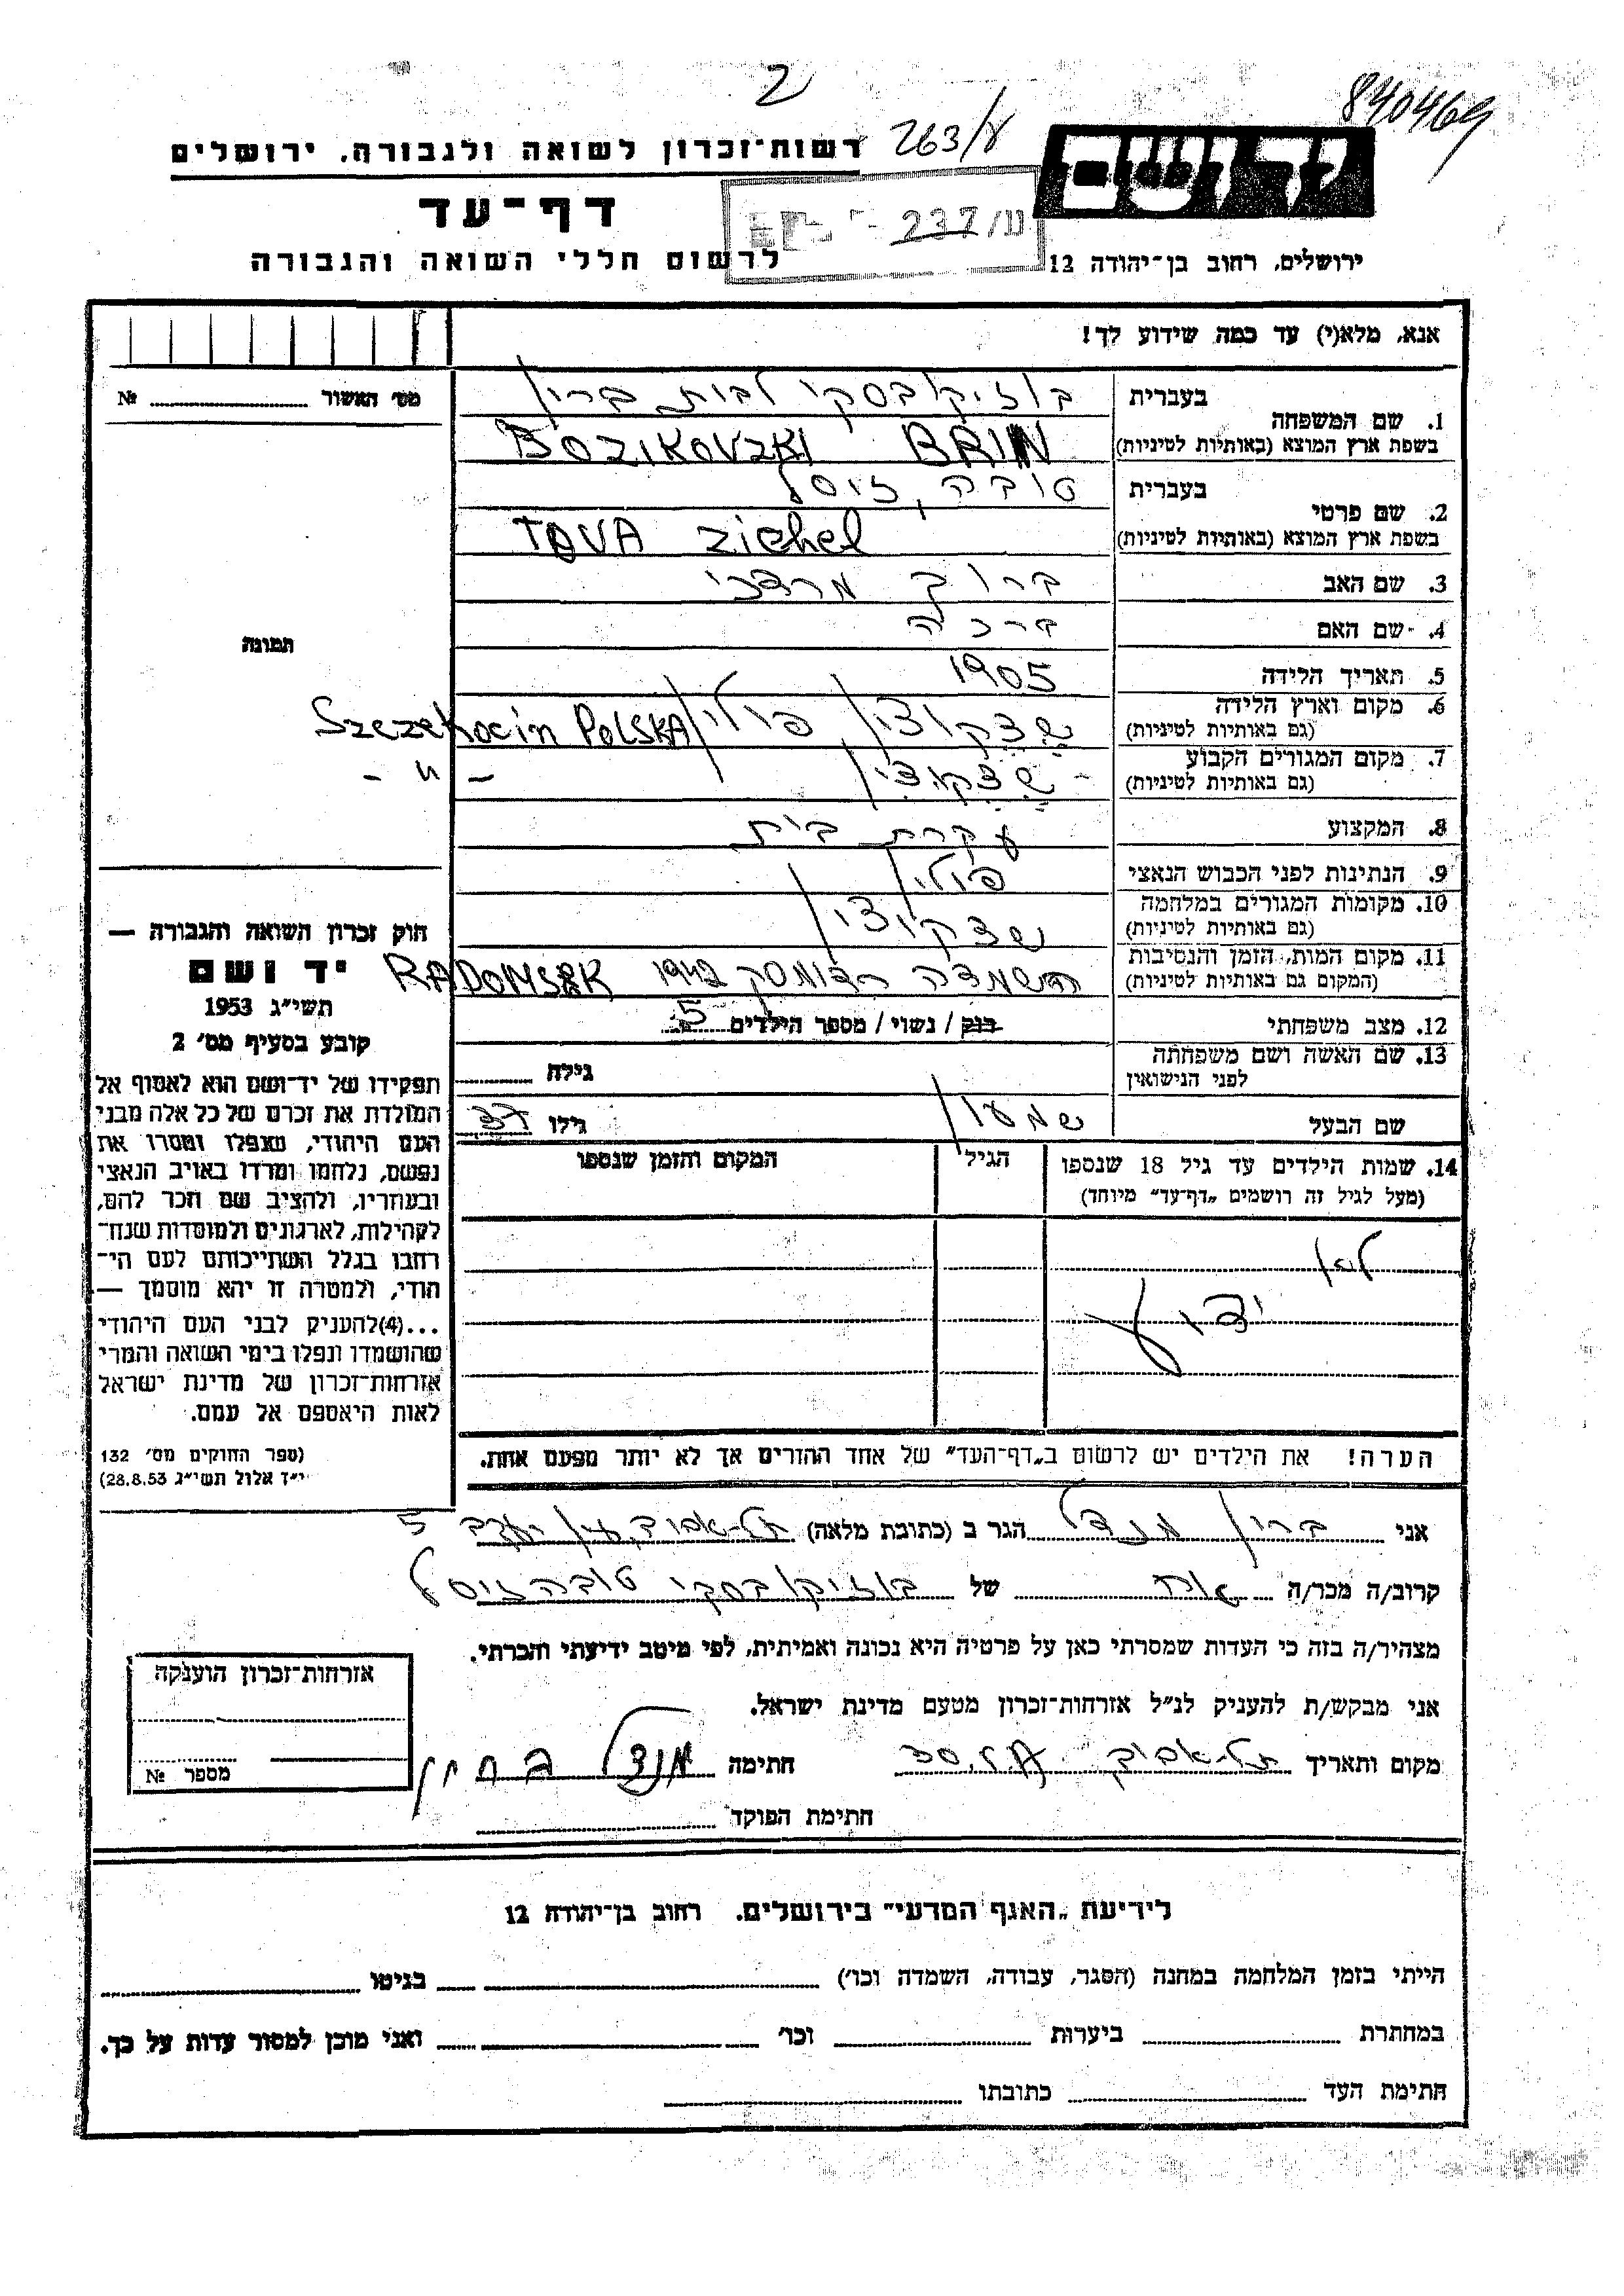 2
840469
263/ע
רשות־זכרון לשואה ולגבורה. ירושלים
דף־עד
237/ש
לרשום חללי השואה והגבורה
ירושלים, רחוב בן־יהודה 12
אנא, מלא(י) עד כמה שידוע לך!
מס׳ האשור № 
1. שם המשפחה בעברית בוזיקובסקי לבית ברין
בשפת ארץ המוצא (באותיות לטיניות) BOZIKOVZKI BRIN
2. שם פרטי בעברית טובה, זיסל
בשפת ארץ המוצא (באותיות לטיניות) TOVA Zichel
3. שם האב ברוך מרדכי
4. שם האם ברכה
5. תאריך הלידה 1905
6. מקום וארץ הלידה (גם באותיות לטיניות) שצקוצין פולין Szczekocin POLSKA
7. מקום המגורים הקבוע (גם באותיות לטיניות) שצקוצין - " -
8. המקצוע עקרת בית
9. הנתינות לפני הכבוש הנאצי פולין
10. מקומות המגורים במלחמה (גם באותיות לטיניות) שצקוצין
11. מקום המות, הזמן והנסיבות (המקום גם באותיות לטיניות) השמדה רדומסק 1942 RADOMSK
12. מצב משפחתי רוק / נשוי / מספר הילדים 5
13. שם האשה ושם משפחתה לפני הנישואין גילה
שם הבעל שמעון גילו 37
14. שמות הילדים עד גיל 18 שנספו הגיל המקום והזמן שנספו
(מעל לגיל זה רושמים „דף־עד״ מיוחד)
לא
ידוע
הערה! את הילדים יש לרשום ב„דף־העד״ של אחד ההורים אך לא יותר מפעם אחת.
תמונה
חוק זכרון השואה והגבורה —
יד ושם
תשי״ג 1953
קובע בסעיף מס׳ 2
תפקידו של יד־ושם הוא לאסוף אל
המולדת את זכרם של כל אלה מבני
העם היהודי, שנפלו ומסרו את
נפשם, נלחמו ומרדו באויב הנאצי
ובעוזריו, ולהציב שם וזכר להם,
לקהילות, לארגונים ולמוסדות שנח־
רחבו בגלל השתייכותם לעם הי־
הודי, ולמטרה זו יהא מוסמך —
...(4)להעניק לבני העם היהודי
שהושמדו ונפלו בימי השואה והמרי
אזרחות־זכרון של מדינת ישראל
לאות היאספם אל עמם.
(ספר החוקים מס׳ 132
י״ז אלול תשי״ג 28.8.53)
אני ברין מנדל הגר ב (כתובת מלאה) תל-אביב עין יעקב 5
קרוב/ה מכר/ה אח של בוזיקובסקי טובה זיסל
מצהיר/ה בזה כי העדות שמסרתי כאן על פרטיה היא נכונה ואמיתית, לפי מיטב ידיעתי והכרתי.
אני מבקש/ת להעניק לנ״ל אזרחות־זכרון מטעם מדינת ישראל.
מקום ותאריך תל-אביב חתימה מנדל ברין
חתימת הפוקד
אזרחות־זכרון הוענקה
מספר №
לידיעת „האגף המדעי״ בירושלים. רחוב בן־יהודה 12
הייתי בזמן המלחמה במחנה (הסגר, עבודה, השמדה וכו׳) בגיטו
במחתרת ביערות וכו׳ ואני מוכן למסור עדות על כך.
חתימת העד כתובתו